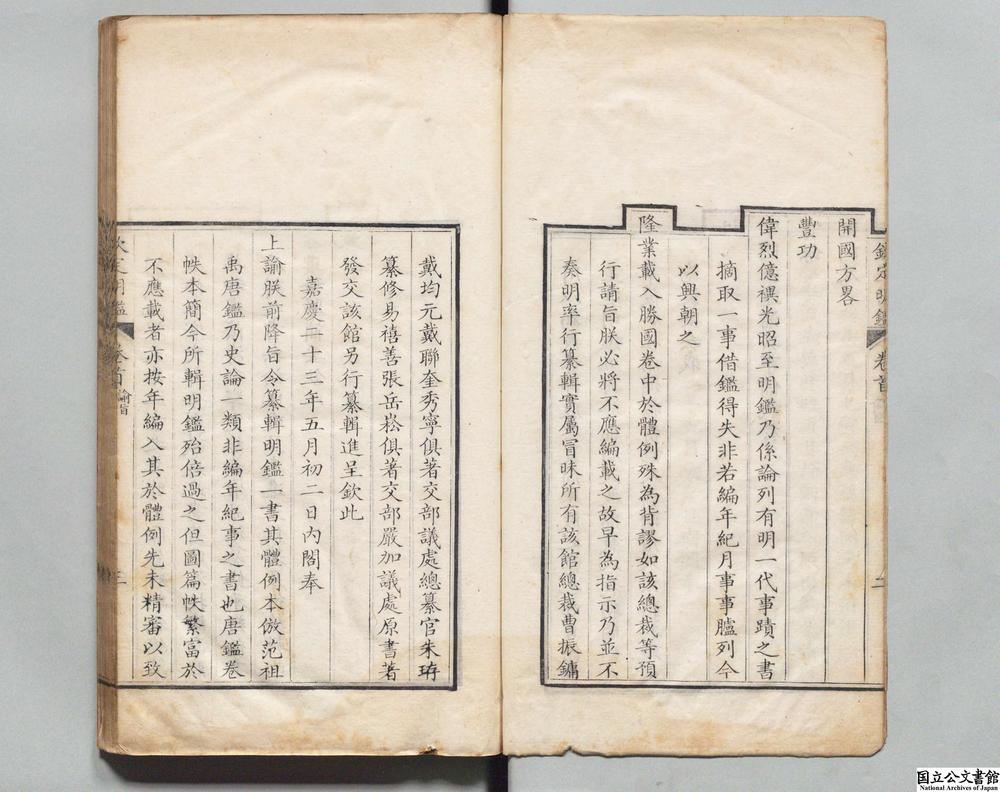 欽定明鑑 卷首 二
開國方畧
豐功
偉烈億禩光昭至明鑑乃係論列有明一代事蹟之書
摘取一事借鑑得失非若編年紀月事事臚列今
以興朝之
隆業載入勝國卷中於體例殊為背謬如該總裁等預
行請旨朕必將不應編載之故早為指示乃並不
奏明率行纂輯實屬冒昧所有該館總裁曹振鏞
戴均元戴聯奎秀寧俱著交部議處總纂官朱珔
纂修易禧善張岳崧俱著交部嚴加議處原書著
發交該館另行纂輯進呈欽此
嘉慶二十三年五月初二日內閣奉
上諭朕前降旨令纂輯明鑑一書其體例本倣范祖
禹唐鑑乃史論一類非編年紀事之書也唐鑑卷
帙本簡今所輯明鑑殆倍過之但圖篇帙繁富於
不應載者亦按年編入其於體例先未精審以致
欽定明鑑 卷首 諭旨 三
国立公文書館
National Archives of Japan